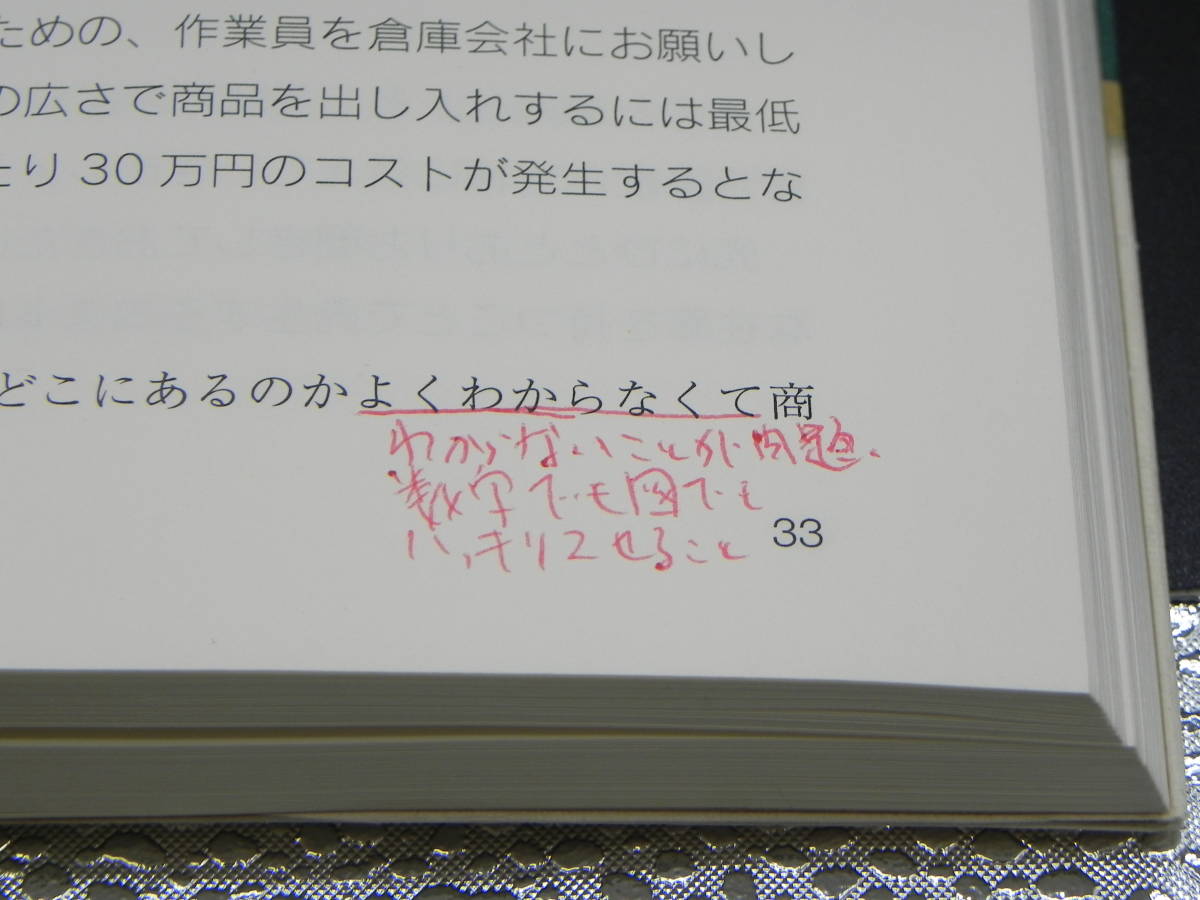 ための、作業員を倉庫会社にお願いし
の広さで商品を出し入れするには最低
たり30万円のコストが発生するとな
どこにあるのかよくわからなくて商
わからないことが問題、
数字でも図でも
ハッキリさせること
33